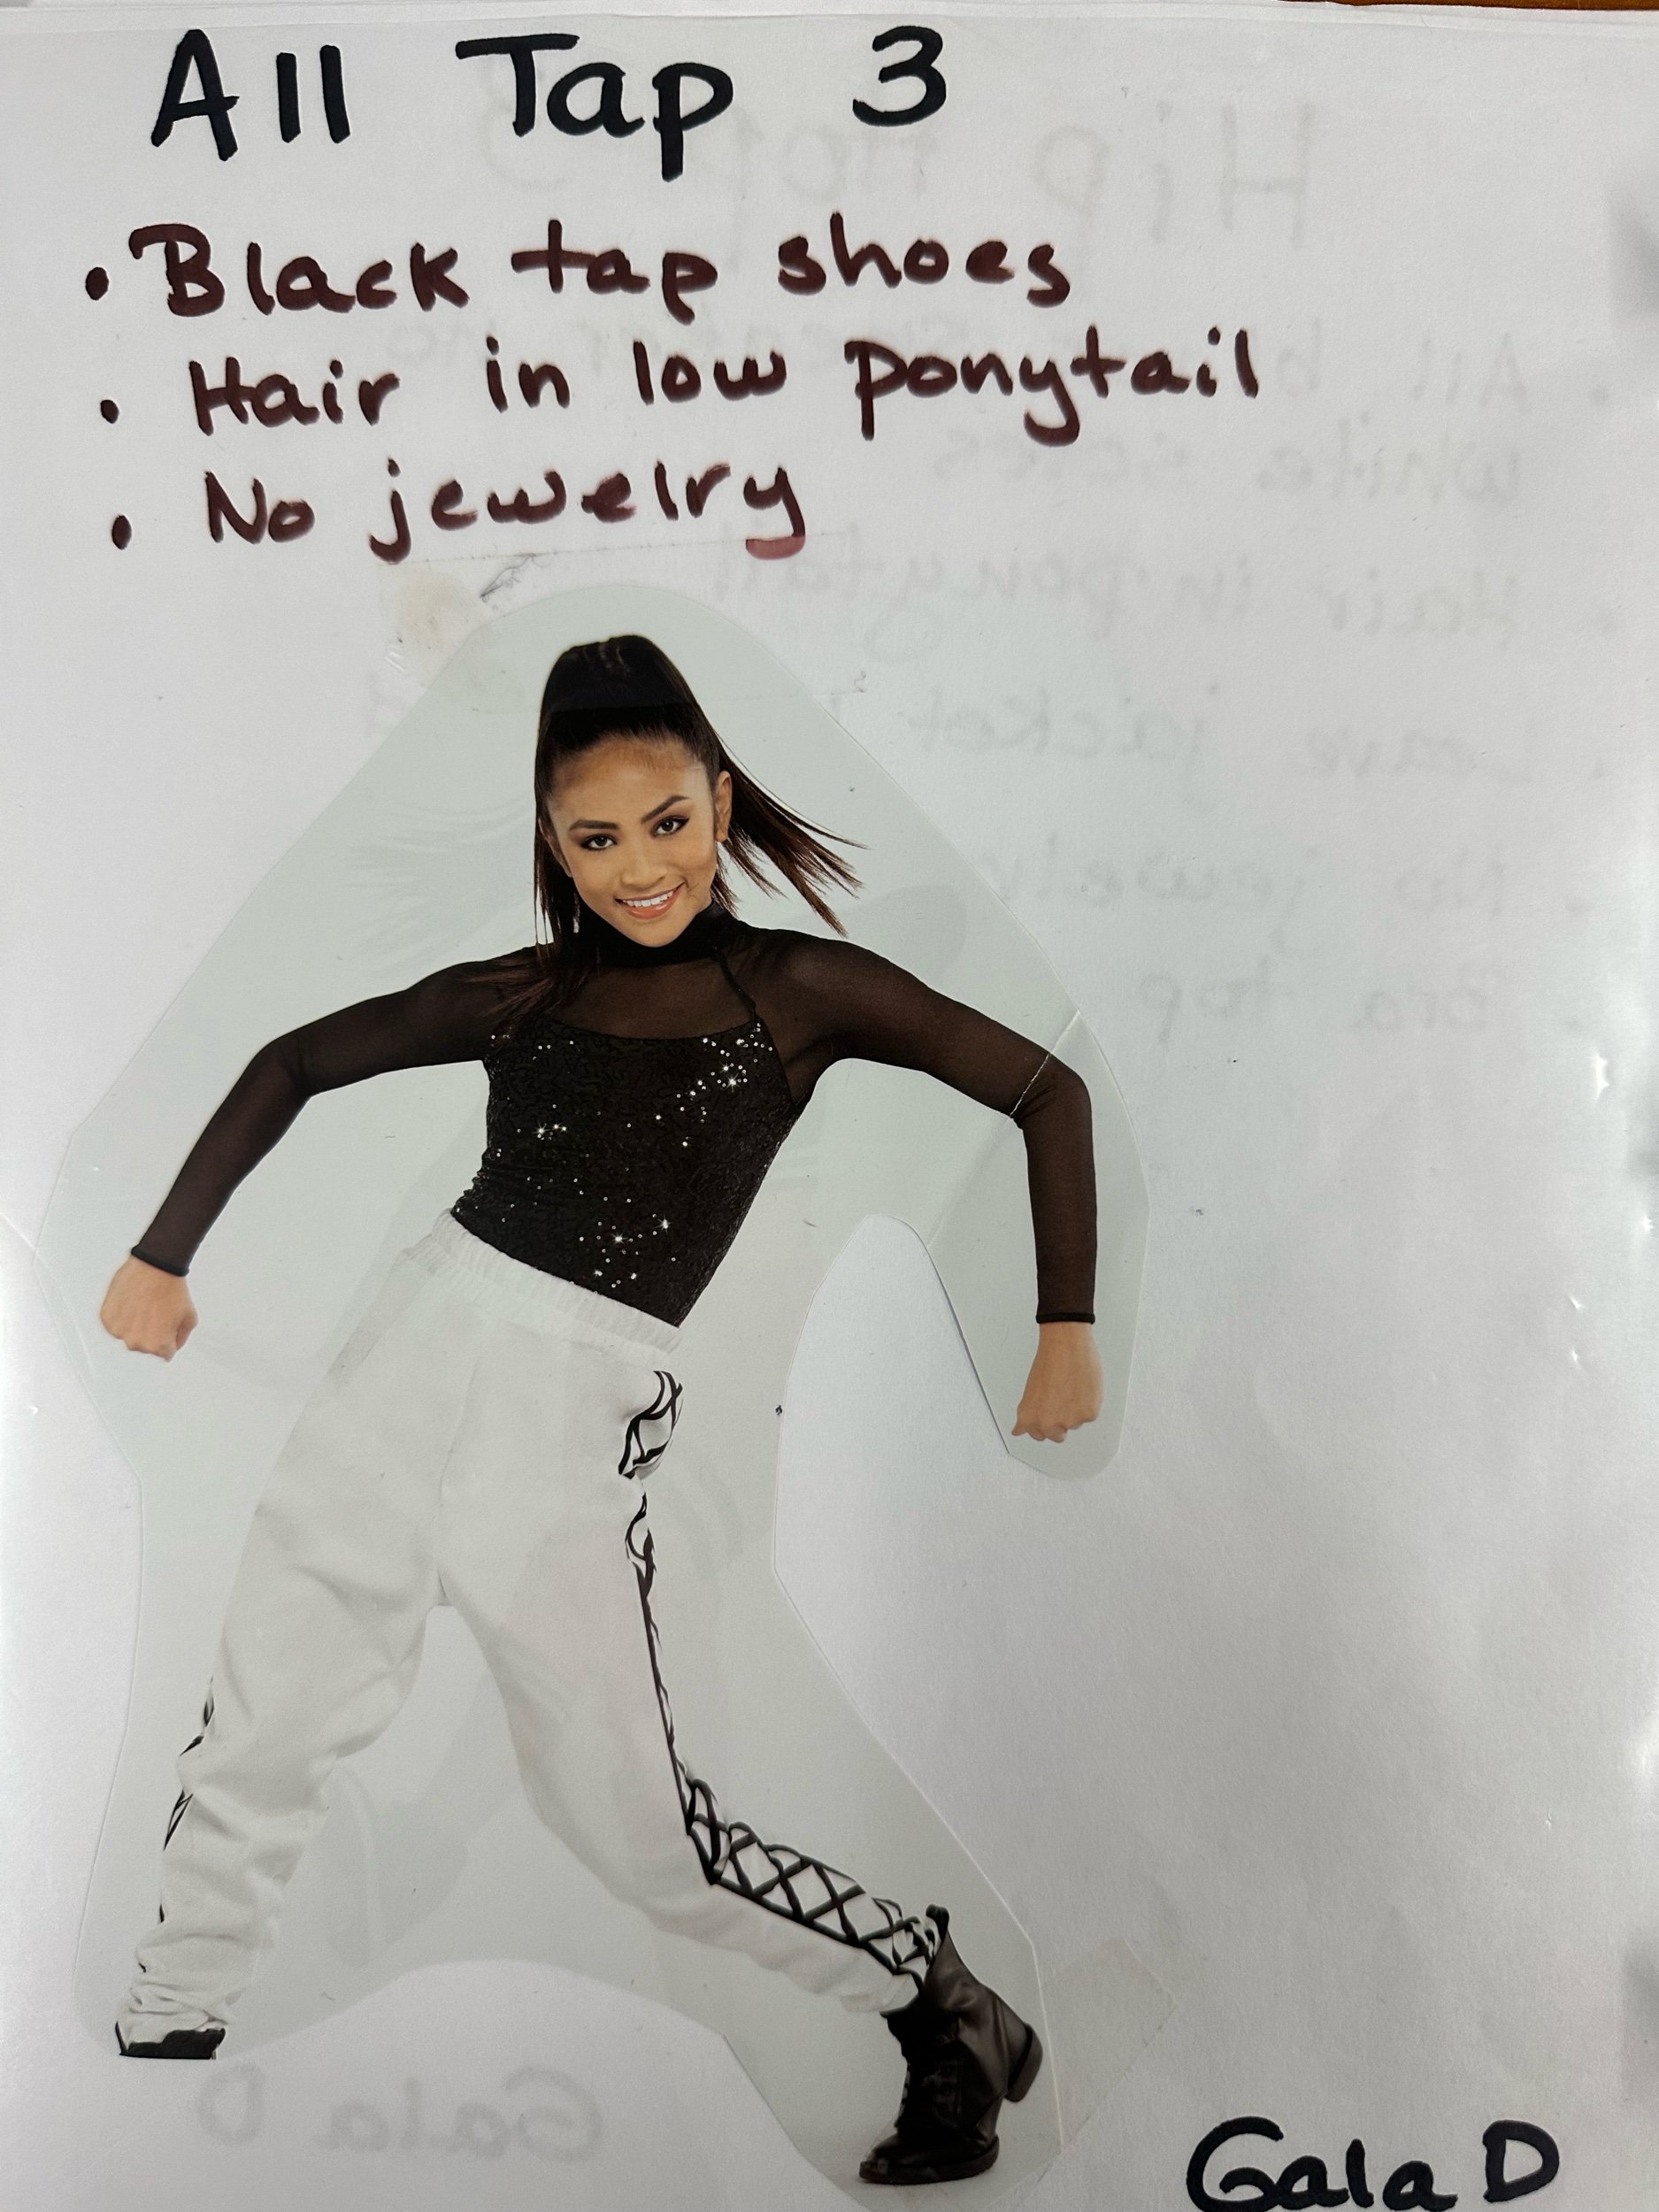 All Tap 3
• Black tap shoes
• Hair in low ponytail
• No jewelry
Gala D